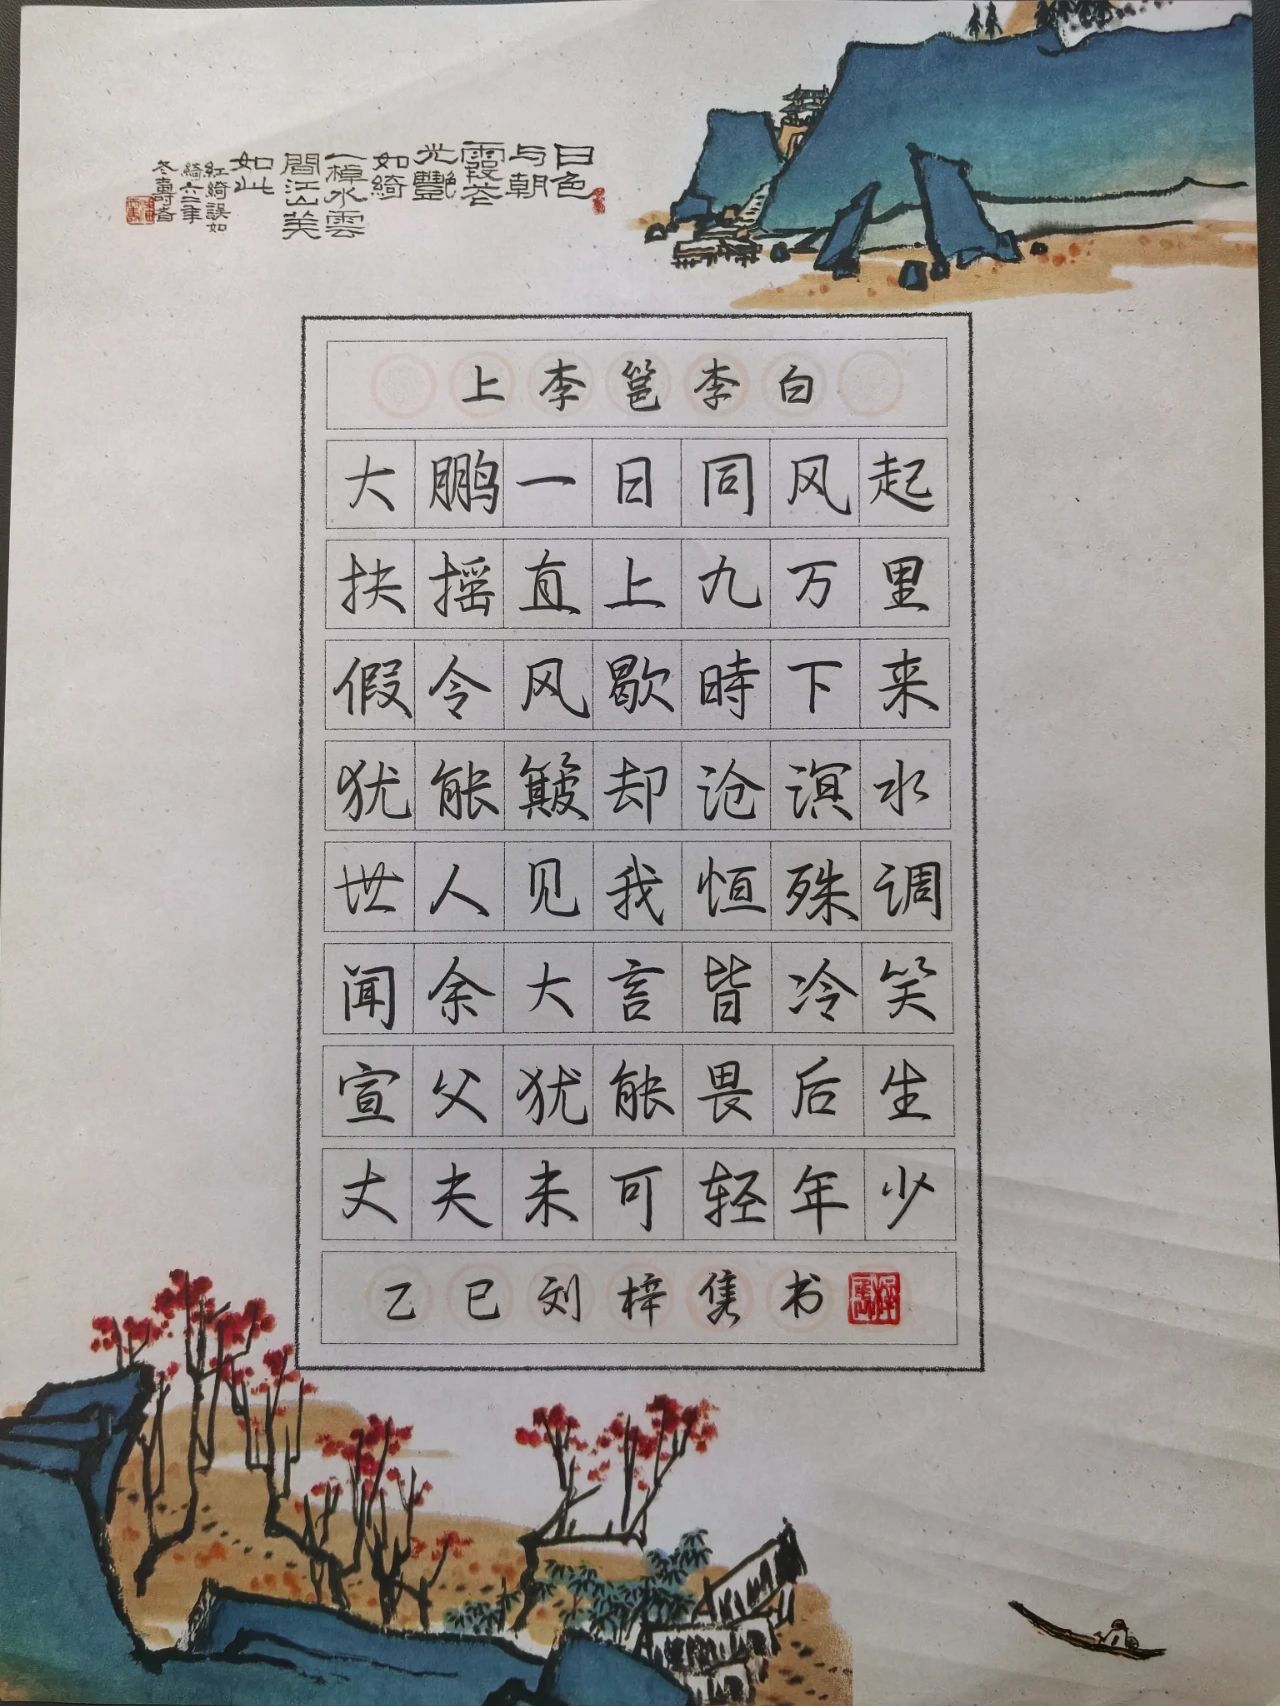 日色
与朝
霞花
光艷
如綺
一棹水雲
間江山美
如此
紅綺誤如
綺六二年
冬壽者
上李邕李白
大鹏一日同风起
扶摇直上九万里
假令风歇時下来
犹能簸却沧溟水
世人见我恒殊调
闻余大言皆冷笑
宣父犹能畏后生
丈夫未可轻年少
乙巳刘梓隽书